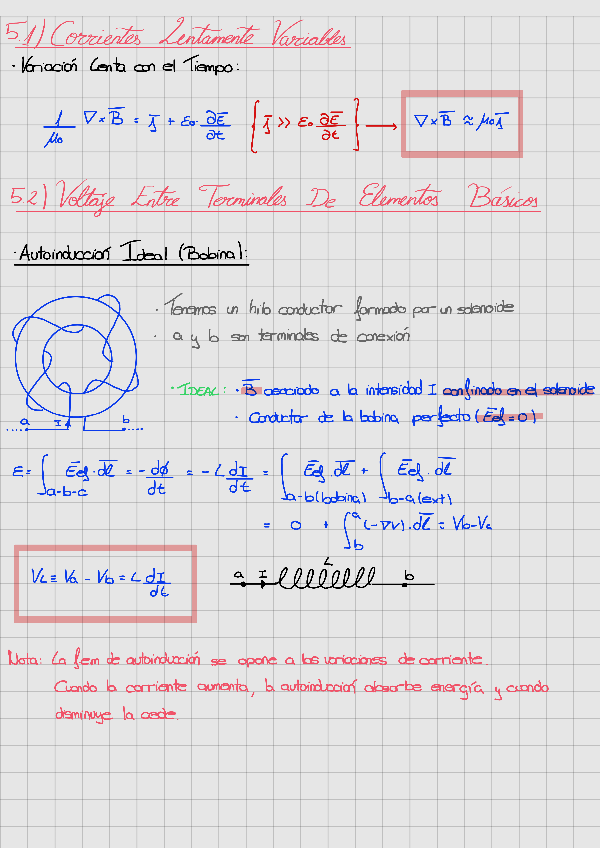 5.1) Corrientes Lentamente Variables
· Variación Lenta con el Tiempo:
1/μ₀ ∇×B̅ = J̅ + ε₀·∂E̅/∂t { J̅ >> ε₀ ∂E̅/∂t } → ∇×B̅ ≈ μ₀J̅
5.2) Voltaje Entre Terminales De Elementos Básicos
· Autoinducción Ideal (Bobina):
· Tenemos un hilo conductor formado por un solenoide
· a y b son terminales de conexión
· IDEAL: · B̅ asociado a la intensidad I confinado en el solenoide
· Conductor de la bobina perfecto (E̅ef = 0)
a I b
ε = ∫a-b-c E̅ef · dl̅ = -dφ/dt = -L dI/dt = ∫a-b(bobina) E̅ef · dl̅ + ∫b-a(ext) E̅ef · dl̅
= 0 + ∫_b^a (-∇V) · dl̅ = Vb - Va
VL ≡ Va - Vb = L dI/dt
a I L b
Nota: La fem de autoinducción se opone a las variaciones de corriente.
Cuando la corriente aumenta, la autoinducción absorbe energía y cuando
disminuye la cede.